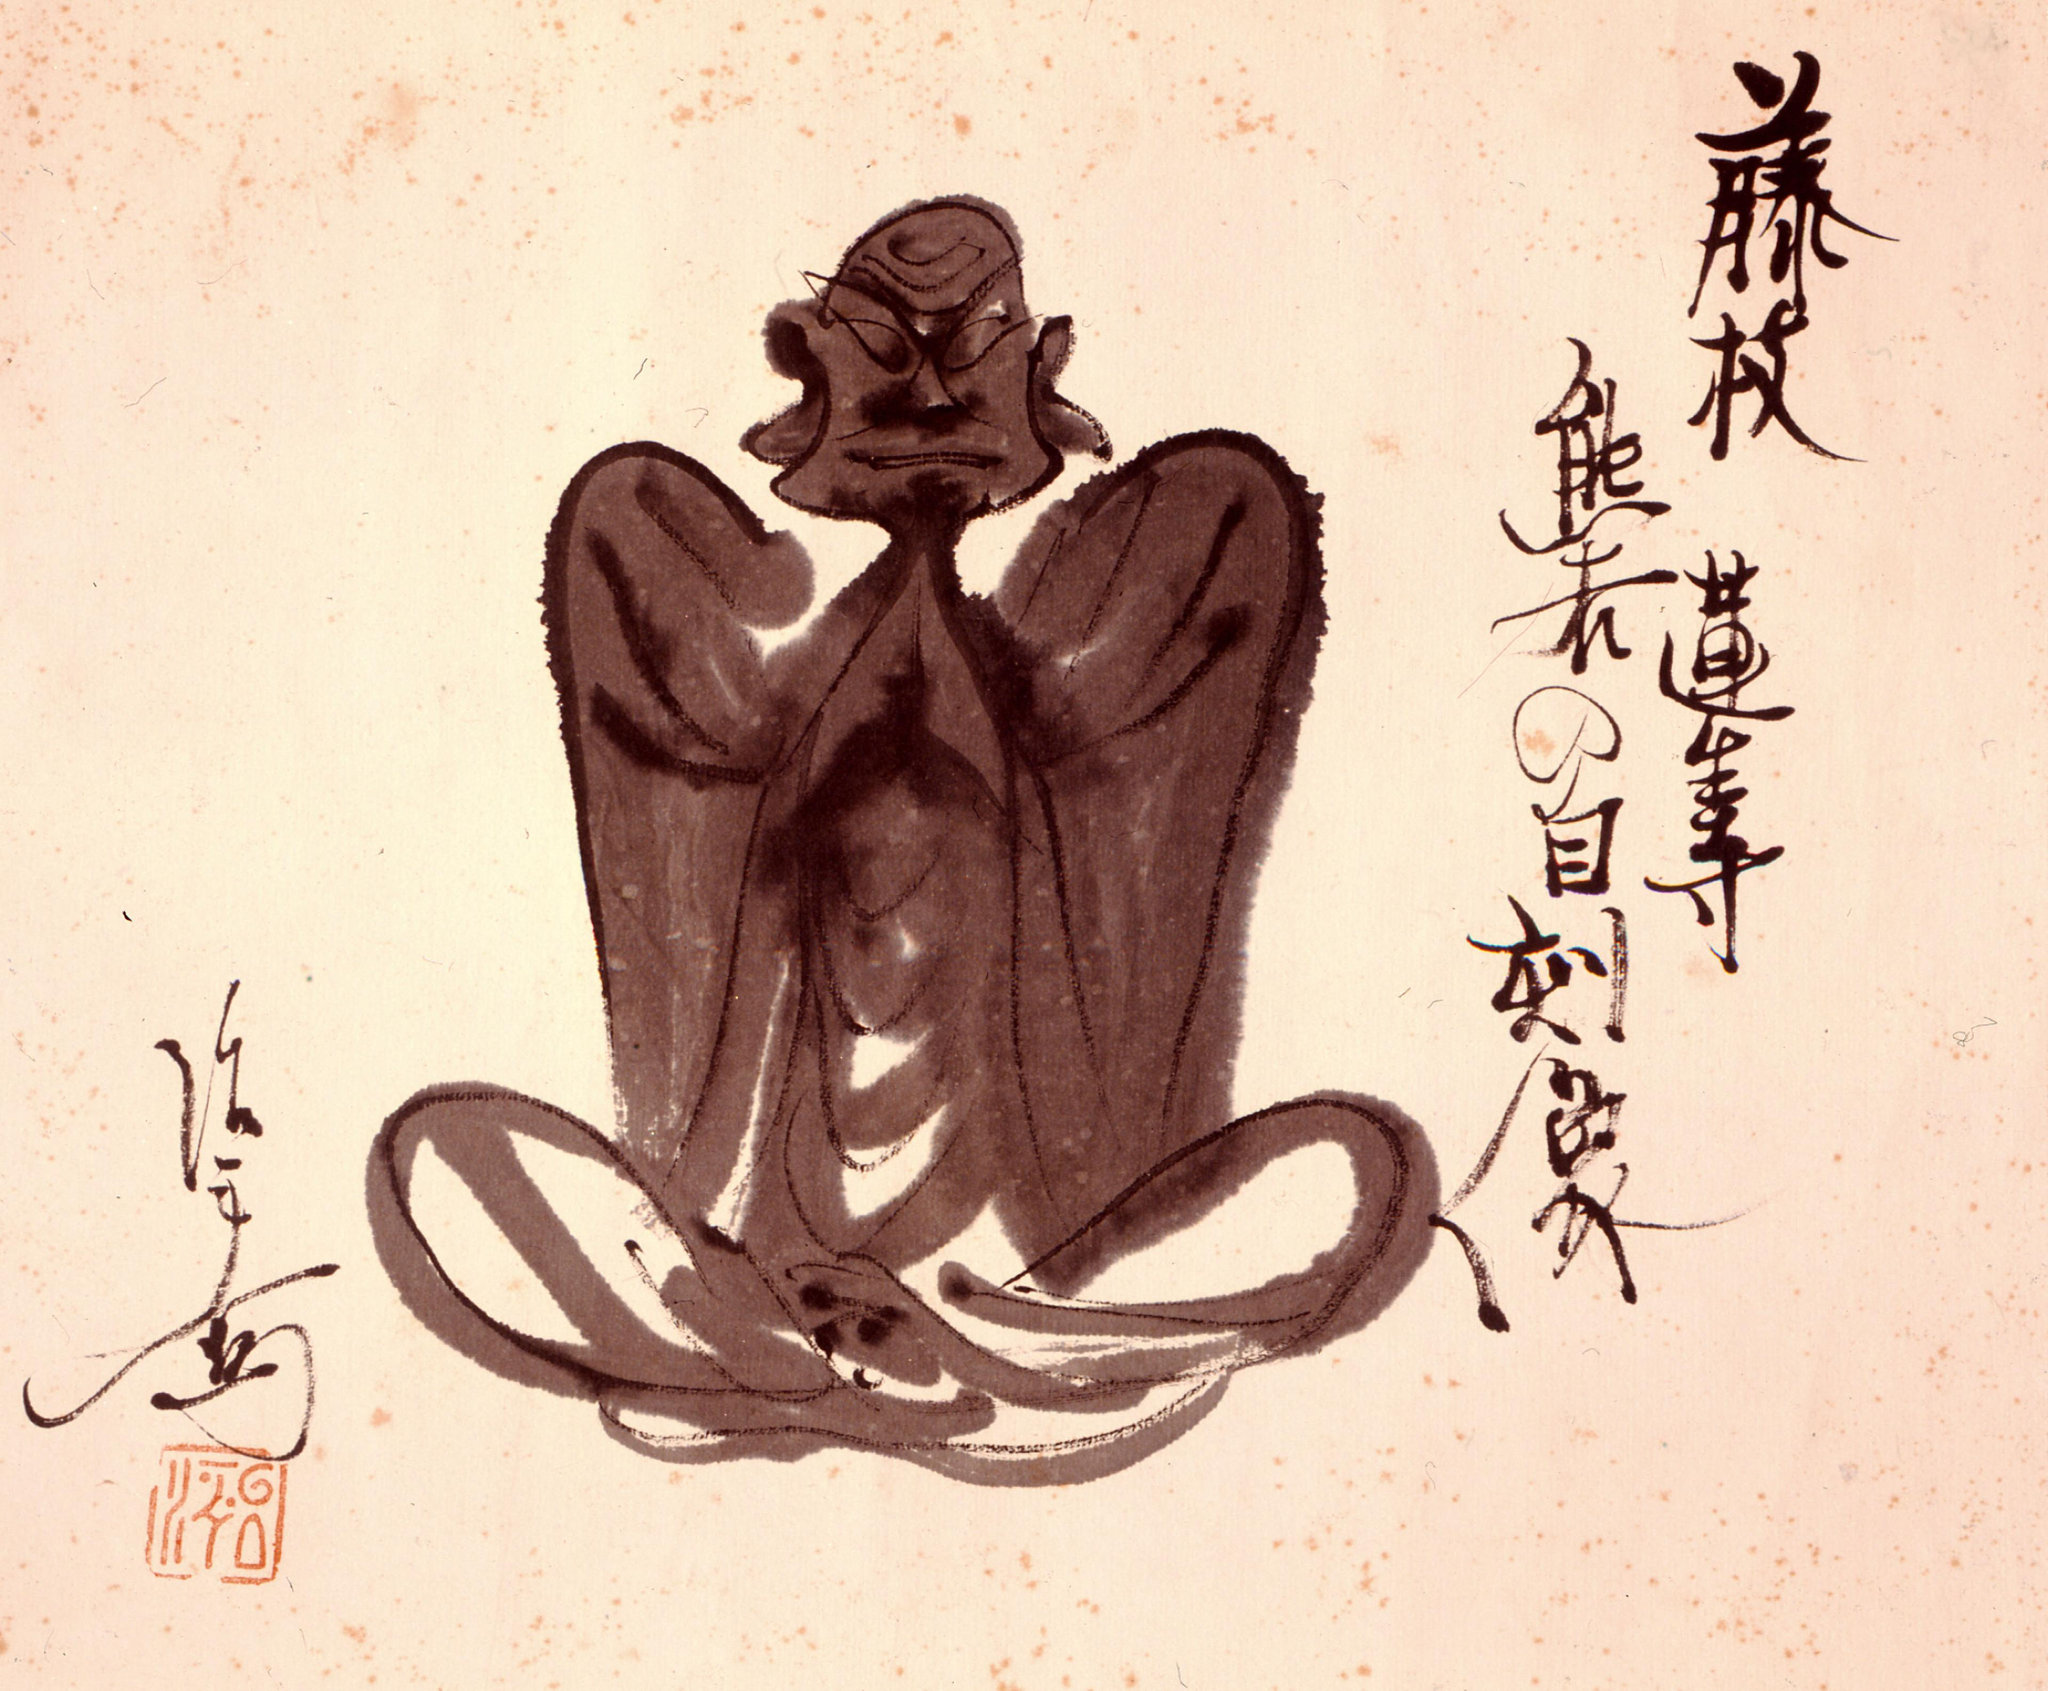 藤枝 蓮生寺
熊谷の自刻像